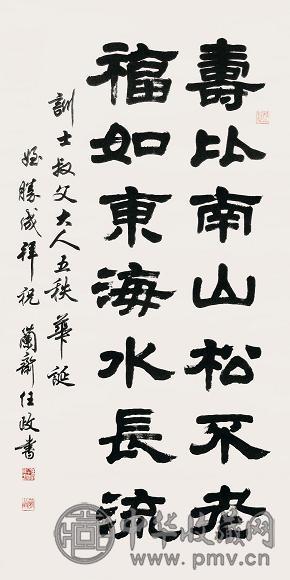 壽比南山松不老
福如東海水長流
訓士叔父大人五秩華誕
姪勝成拜祝 蘭齋任政書
中华收藏网
www.pmv.cn